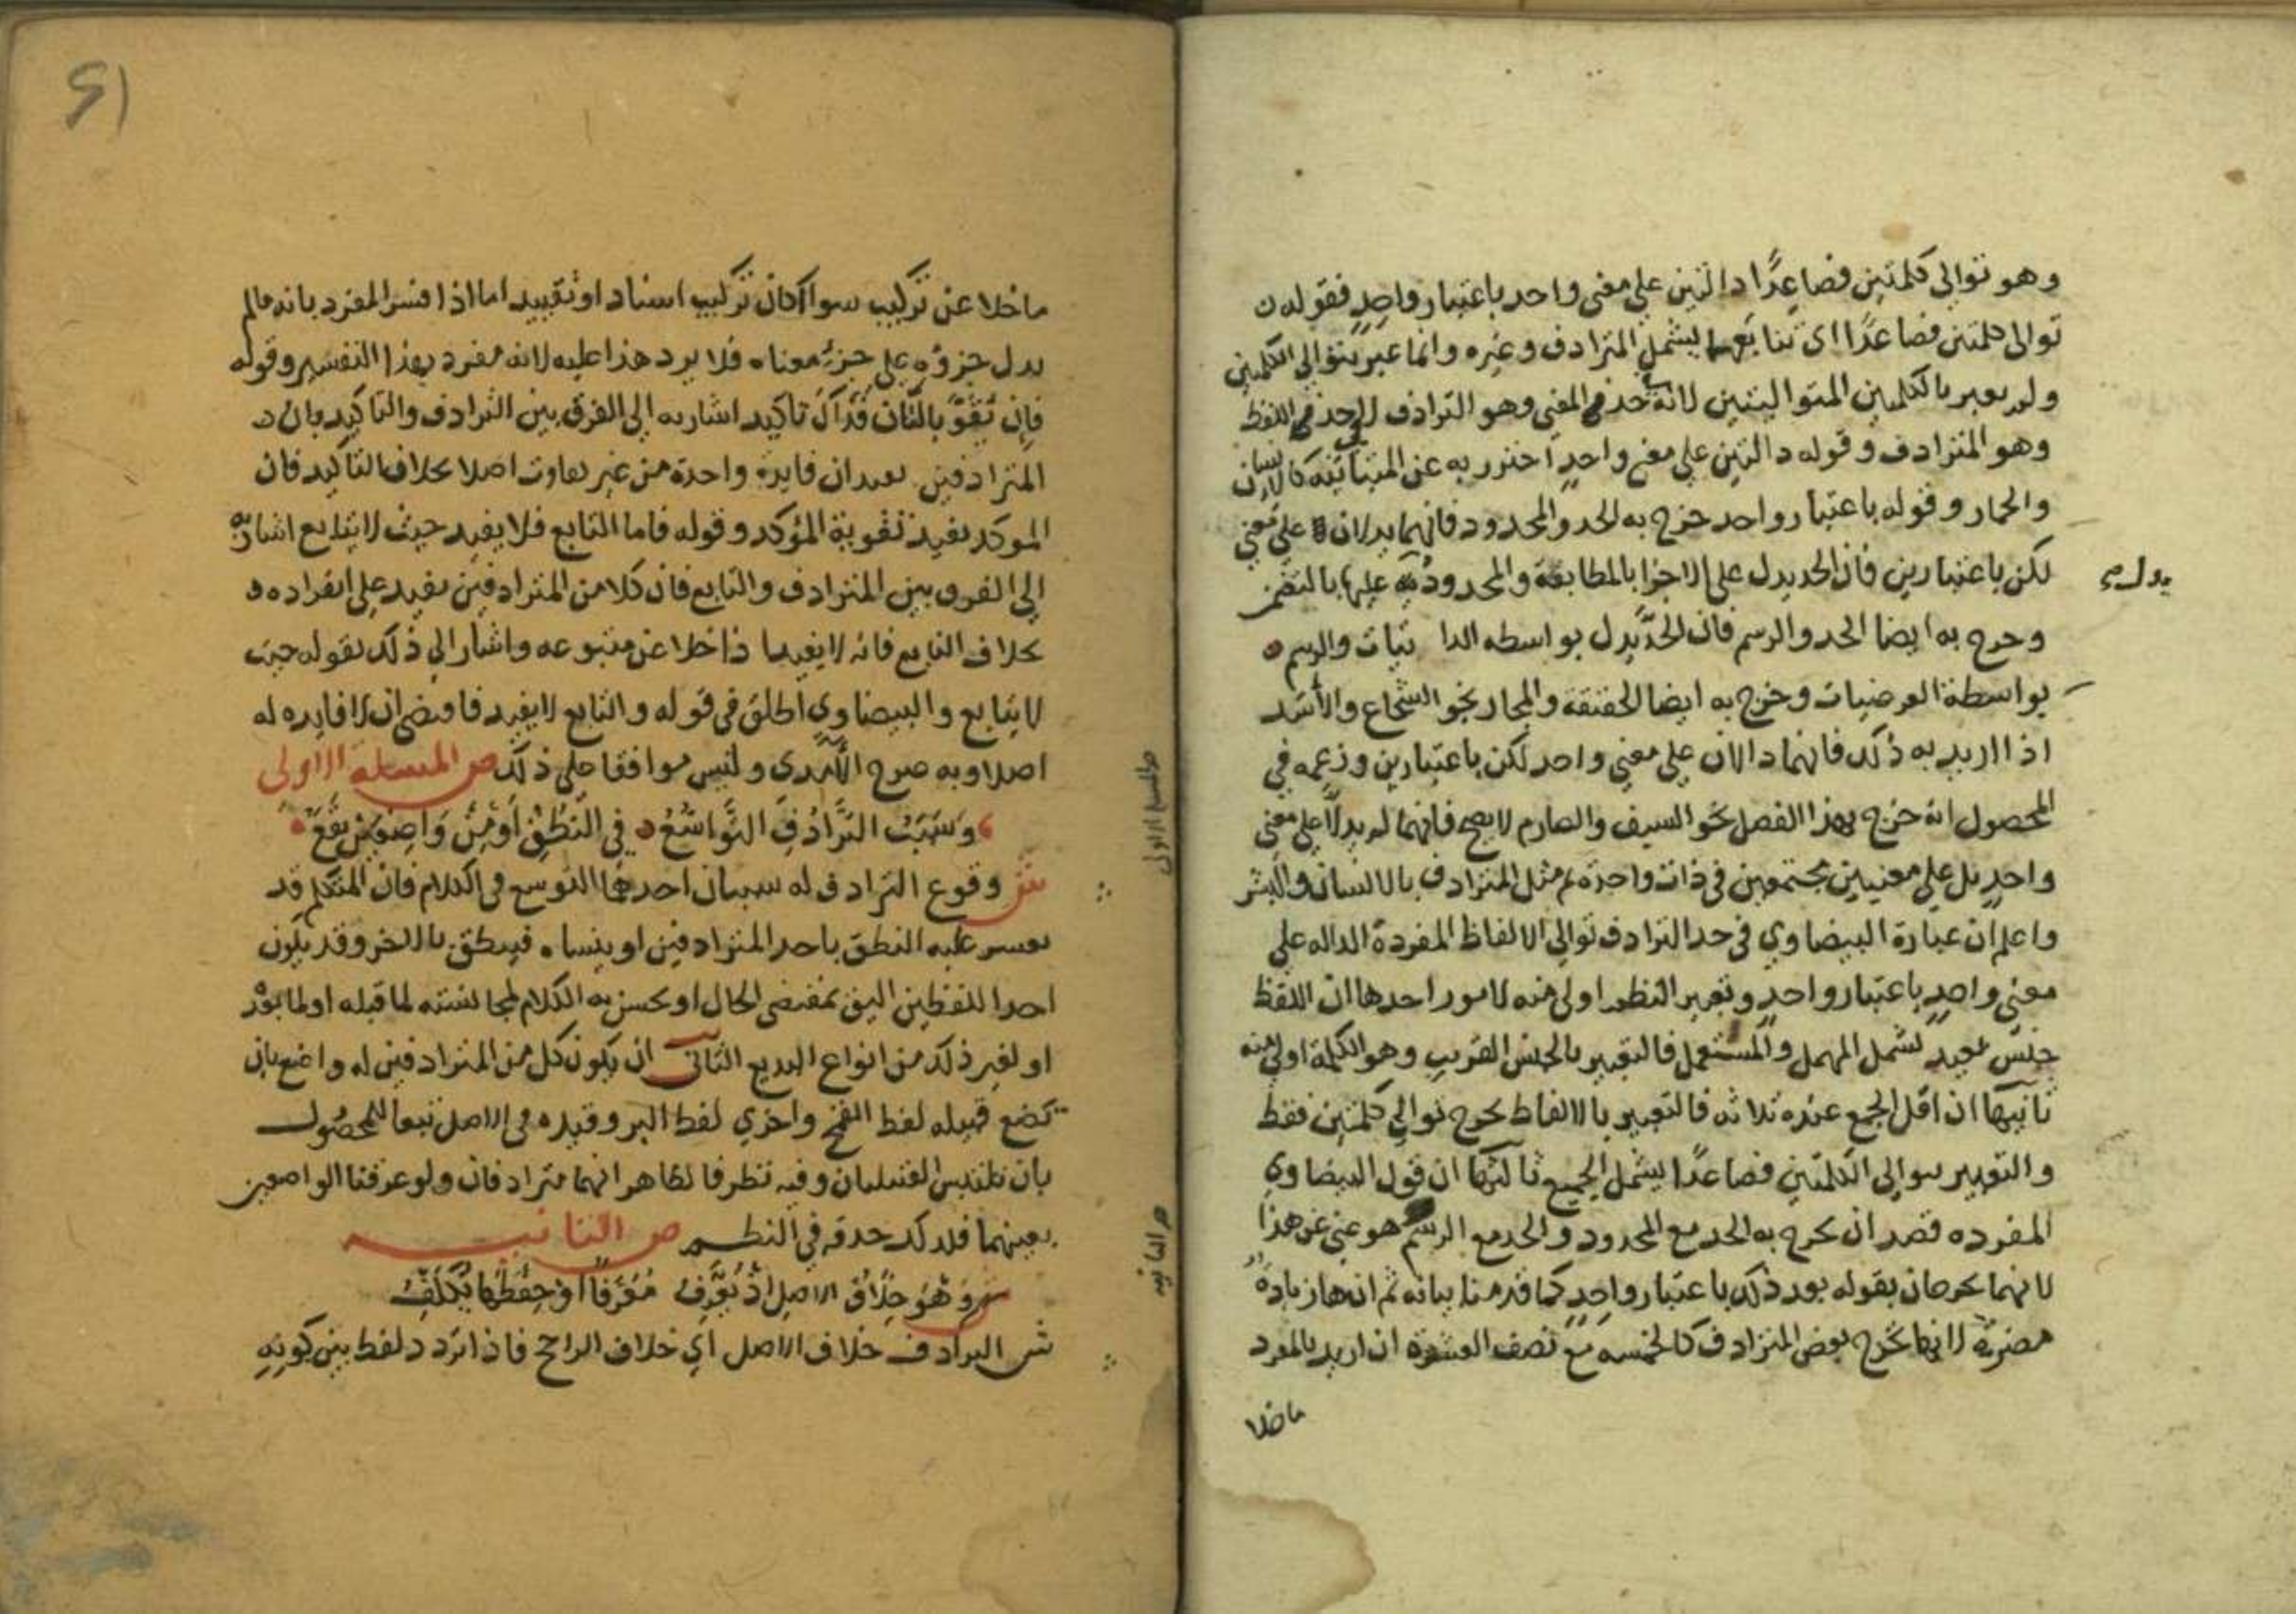 وهو توالي كلمتين فصاعدًا دالتين علي معني واحد باعتبار واحدٍ فقوله
توالي كلمتين فصاعدًا اي تتابعهما ليشمل المترادف وغيره وانما عبر بتوالي الكلمتين
ولم يعبر بالكلمتين المتواليتين لانه حد في المعني وهو الترادف لا حد في اللفظ
وهو المترادف وقوله دالتين علي معني واحدٍ احترز به عن المتباينه كالانسان
والحمار وقوله باعتبار واحد خرج به الحد والمحدود فانهما يدلان علي معني
لكن باعتبارين فان الحد يدل علي الاجزا بالمطابقة والمحدود يدل عليها بالتضمن
يدل صح
وخرج به ايضا الحد والرسم فان الحدَّ يدل بواسطه الذاتيات والرسم
بواسطة العرضيات وخرج به ايضا الحقيقة والمجاز نحو الشجاع والأسد
اذا اريد به ذلك فانهما دالان علي معني واحد لكن باعتبارين وزعمه في
المحصول انه خرج بهذا الفصل نحو السيف والصارم لا يصح فانهما لم يدلا علي معني
واحدٍ بل علي معنيين مجتمعين في ذات واحدة ثم مثل المترادف بالانسان والبشر
واعلم ان عبارة البيضاوي في حد الترادف توالي الالفاظ المفردة الداله علي
معني واحدٍ باعتبار واحدٍ وتعبير النظم اولي منه لامور احدها ان اللفظ
جنس بعيد يشمل المهمل والمستعمل فالتعبير بالجنس القريب وهو الكلمة اولي منه
ثانيها ان اقل الجمع عنده ثلاثه فالتعبير بالالفاظ يخرج توالي كلمتين فقط
والتعبير بتوالي الكلمتين فصاعدًا يشمل الجميع ثالثها ان قول البيضاوي
المفرده قصد ان يخرج به الحد مع المحدود والحد مع الرسم هو غني عن هذا
لانهما يخرجان بقوله بعد ذلك باعتبار واحدٍ كما قدمنا بيانه ثم انها زيادةٌ
مضرة لانها تخرج بعض المترادف كالخمسه مع نصف العشرة ان اريد بالمفرد
ما خلا
ما خلا عن تركيب سوا كان تركيب اسناد او تقييد اما اذا فسر المفرد بانه مالم
يدل جزؤه علي جزء معناه فلا يرد هذا عليه لانه مفرد بهذا التفسير وقوله
فإن تقوَّ بالثان فذاك تاكيد اشار به الي الفرق بين الترادف والتاكيد بان
المترادفين يفيدان فايدة واحدة من غير تفاوت اصلا بخلاف التاكيد فان
الموكد يفيد تقوية المؤكد وقوله فاما التابع فلا يفيد حيث لا يتابع اشار به
الي الفرق بين المترادف والتابع فان كلا من المترادفين يفيد علي انفراده
بخلاف التابع فانه لا يفيد اذا خلا عن متبوعه واشار الي ذلك بقوله حيث
لا يتابع والبيضاوي اطلق في قوله والتابع لا يفيد فاقتضي ان لا فايده له
اصلا وبه صرح الآمدي وليس موافقا علي ذلك ص المسلة الاولي
وسبب الترادف التواسع في النطق أو من واضعَيْن يقع
ش وقوع الترادف له سببان احدهما التوسع في الكلام فان المتكلم قد
يعسر عليه النطق باحد المترادفين او ينساه فينطق بالاخر وقد يكون
احد اللفظين اليق بمقتضي الحال او يحسن به الكلام لمجانسته لما قبله او لما بعد
او لغير ذلك من انواع البديع الثاني ان يكون كل من المترادفين له واضع بان
تضع قبيله لفظ القمح واخري لفظ البر وقيده في الاصل تبعا للمحصول
بان تلتبس القبيلتان وفيه نظر فالظاهر انهما مترادفان ولو عرفنا الواضعين
بعينهما فلذلك حذفه في النظم ص الثانيه
وهو خلاف الاصل إذ يعرف معرفاً او حفظها يكلف
ش الترادف خلاف الاصل اي خلاف الراجح فاذا تردد لفظ بين كونه